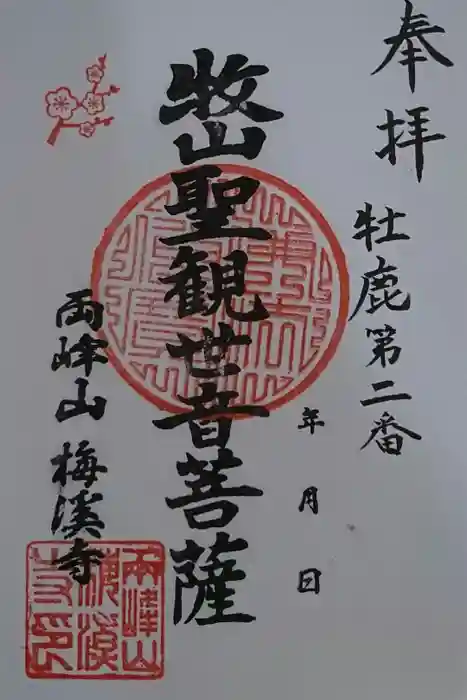 奉拝
牡鹿第二番
年 月 日
牧山聖観世音菩薩
両峰山 梅溪寺
両峰山
梅溪
寺印